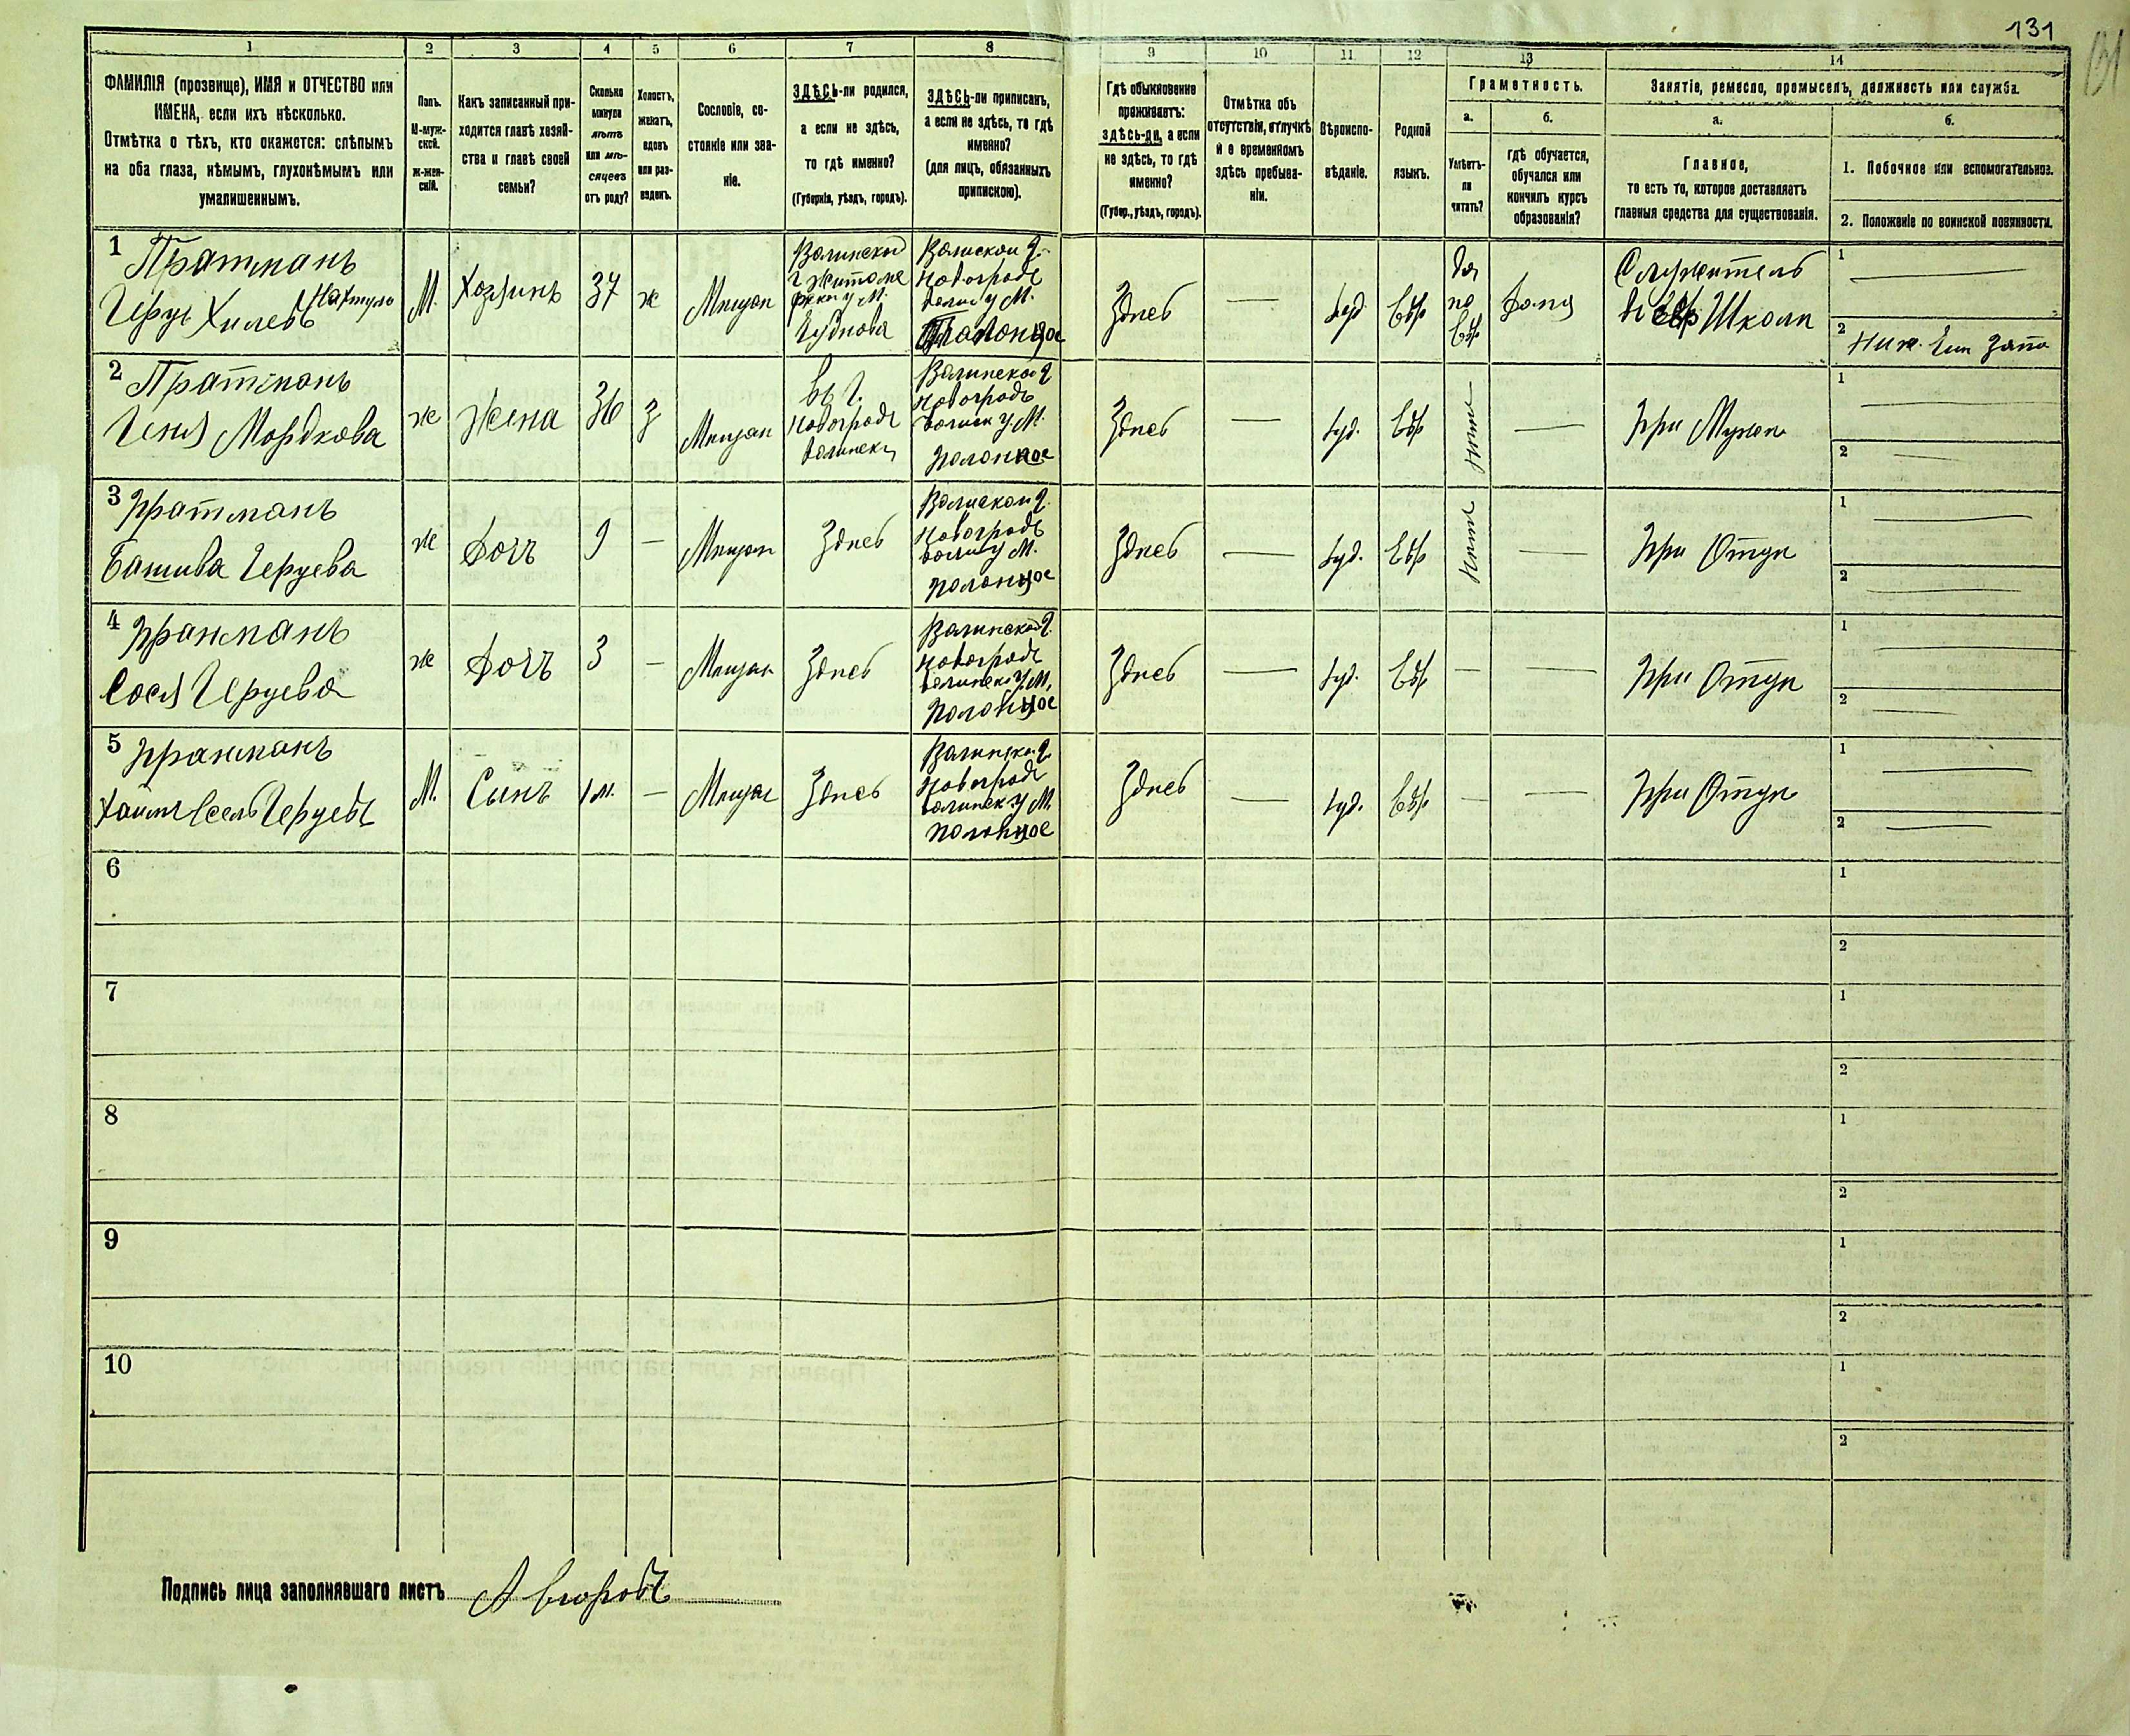 131
1 2 3 4 5 6 7 8 9 10 11 12 13 14
ФАМИЛІЯ (прозвище), ИМЯ и ОТЧЕСТВО или
ИМЕНА, если ихъ нѣсколько.
Отмѣтка о тѣхъ, кто окажется: слѣпымъ
на оба глаза, нѣмымъ, глухонѣмымъ или
умалишеннымъ.
Полъ.
М-муж-
ской.
Ж-жен-
скій.
Какъ записанный при-
ходится главѣ хозяй-
ства и главѣ своей
семьи?
Сколько
минуло
лѣтъ
или мѣ-
сяцевъ
отъ роду?
Холостъ,
женатъ,
вдовъ
или раз-
веденъ.
Сословіе, со-
стояніе или зва-
ніе.
ЗДѢСЬ-ли родился,
а если не здѣсь,
то гдѣ именно?
(Губернія, уѣздъ, городъ).
ЗДѢСЬ-ли приписанъ,
а если не здѣсь, то гдѣ
именно?
(для лицъ, обязанныхъ
припискою).
Гдѣ обыкновенно
проживаетъ:
здѣсь-ли, а если
не здѣсь, то гдѣ
именно?
(Губер., уѣздъ, городъ).
Отмѣтка объ
отсутствіи, отлучкѣ
и о временномъ
здѣсь пребыва-
ніи.
Вѣроиспо-
вѣданіе.
Родной
языкъ.
Грамотность.
а.
Умѣетъ-
ли
читать?
б.
гдѣ обучается,
обучался или
кончилъ курсъ
образованія?
Занятіе, ремесло, промыселъ, должность или служба.
а.
Главное,
то есть то, которое доставляетъ
главныя средства для существованія.
б.
1. Побочное или вспомогательное.
2. Положеніе по воинской повинности.
1 Пратманъ
Герц Хилевъ
М.
Хозяинъ
37
ж
Мещан
Волинской
г Житоме
М.
Чуднова
Волиской г.
Новоградъ
волин у М.
Полонное
Здесь
—
Іуд.
Евр
да
по
Евр
дома
Служитель
в Евр Школи
1 —
2
2 Пратманъ
Геня Мордкова
ж
Жена
36
з
Мещан
въ г.
Новоградъ
волинскъ
Волинской г
Новоградъ
волин у М.
Полонное
Здесь
—
Іуд.
Евр
нет
—
При Муже
1 —
2 —
3 Пратманъ
Башива Герцева
ж
Дочъ
9
—
Мещан
Здесь
Волиской г.
Новоградъ
волин у М.
полонное
Здесь
—
Іуд.
Евр
Нет
—
При Отце
1 —
2 —
4 Пратманъ
Сося Герцева
ж
Дочъ
3
—
Мещан
Здесь
Волинской г.
Новоградъ
волинск у М.
Полонное
Здесь
—
Іуд.
Евр
—
—
При Отце
1 —
2 —
5 Пратманъ
Хаим Герцевъ
М.
Сынъ
1 м.
—
Мещан
Здесь
Волинской г
Новоградъ
волинск у М.
полонное
Здесь
—
Іуд.
Евр
—
—
При Отце
1 —
2 —
6
1
2
7
1
2
8
1
2
9
1
2
10
1
2
Подпись лица заполнявшаго листъ